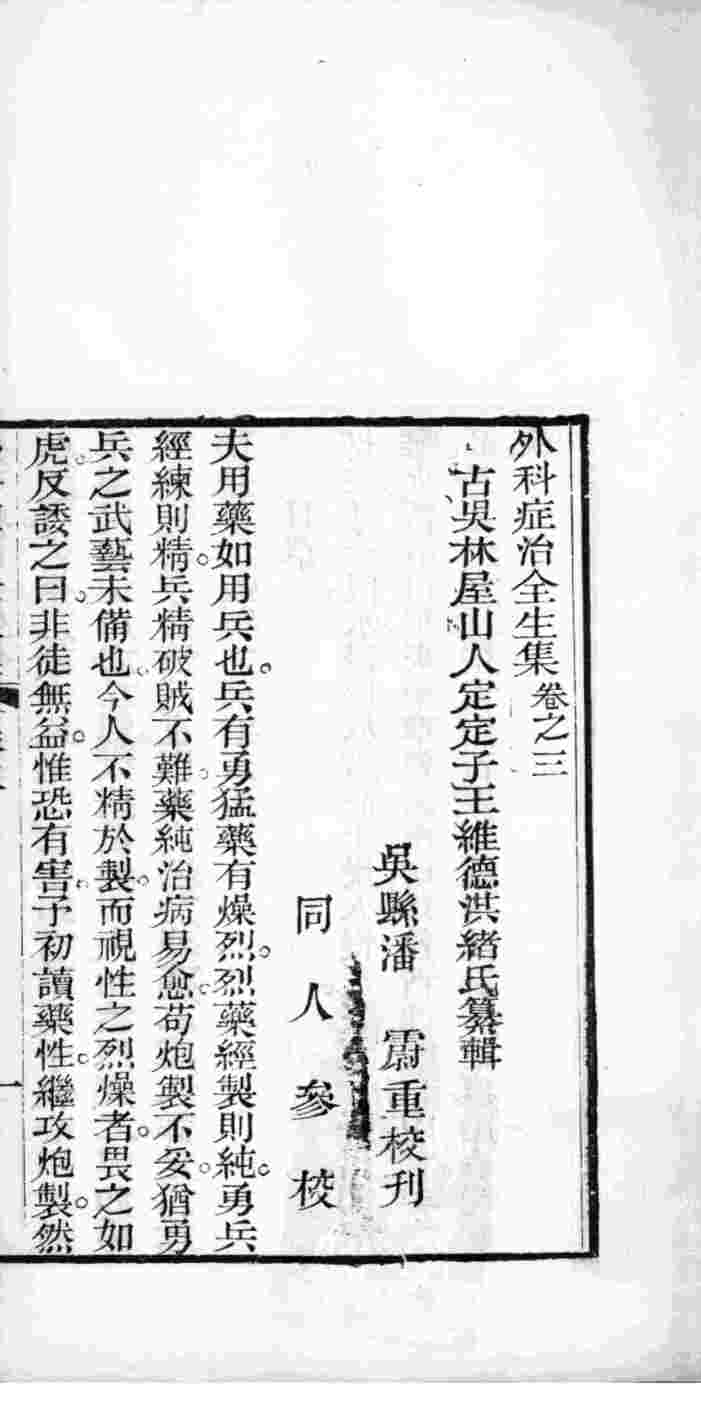 外科症治全生集 卷之三
古吳林屋山人定定子王維德洪緒氏纂輯
吳縣潘 霨重校刊
同人參校
夫用藥如用兵也。兵有勇猛藥有燥烈。烈藥經製則純。勇兵
經練則精。兵精破賊不難。藥純治病易愈。苟炮製不妥。猶勇
兵之武藝未備也。今人不精於製。而視性之烈燥者。畏之如
虎。反諉之曰。非徒無益。惟恐有害。予初讀藥性。繼攻炮製。然
一